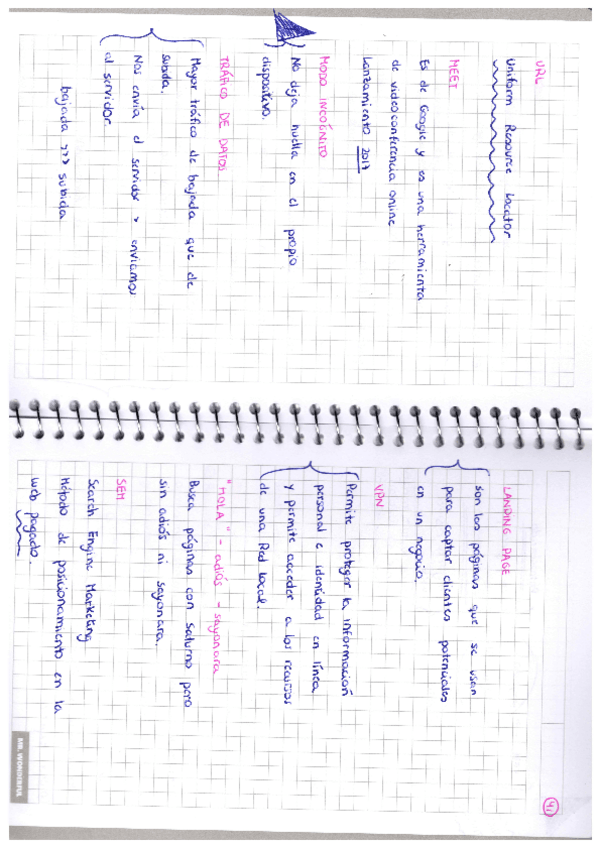 URL
Uniform Resource Locator
MEET
Es de Google y es una herramienta
de videoconferencia online
Lanzamiento 2017
MODO INCÓGNITO
No deja huella en el propio
dispositivo.
TRÁFICO DE DATOS
Mayor tráfico de bajada que de
subida.
Nos envía el servidor > enviamos
al servidor.
bajada >>> subida
41
LANDING PAGE
son las páginas que se usan
para captar clientes potenciales
en un negocio.
VPN
Permite proteger la información
personal e identidad en línea
y permite acceder a los recursos
de una Red Local.
"HOLA" - adiós - sayonara
Busca páginas con saludo pero
sin adiós ni sayonara.
SEM
Search Engine Marketing
Método de posicionamiento en la
web pagado.
MR. WONDERFUL